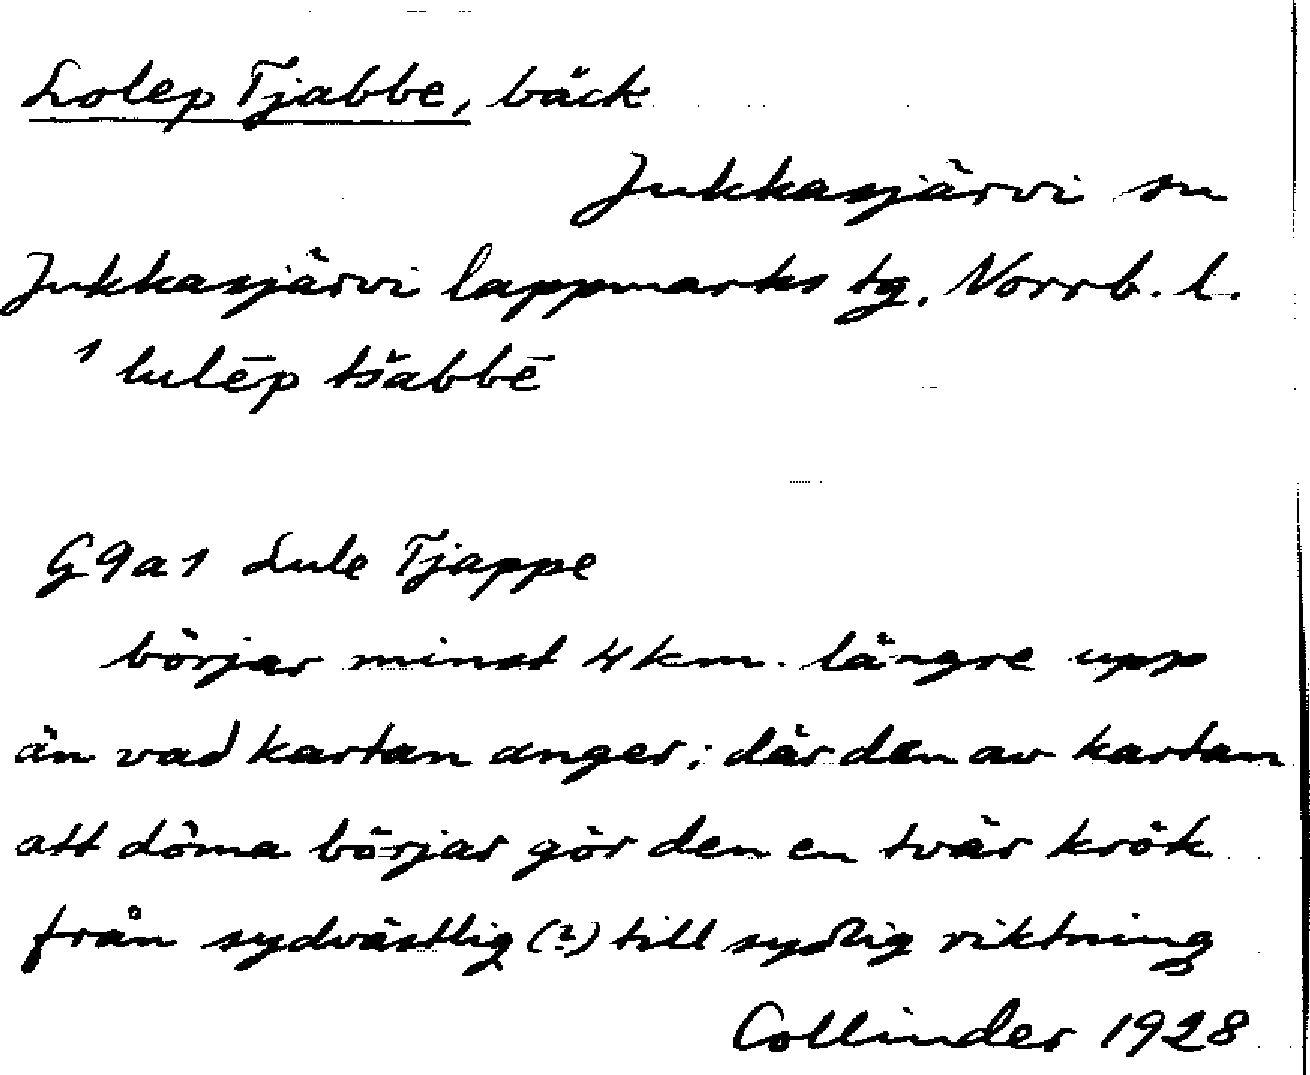 Lolep Tjabbe, bäck
Jukkasjärvi sn
Jukkasjärvi lappmarks tg. Norrb. l.
1 lulēp tšabbē
G9a1 Lule Tjappe
börjar minst 4 km. längre upp
än vad kartan anger; där den av kartan
att döma börjar gör den en tvär krök
från sydvästlig (?) till sydlig riktning
Collinder 1928